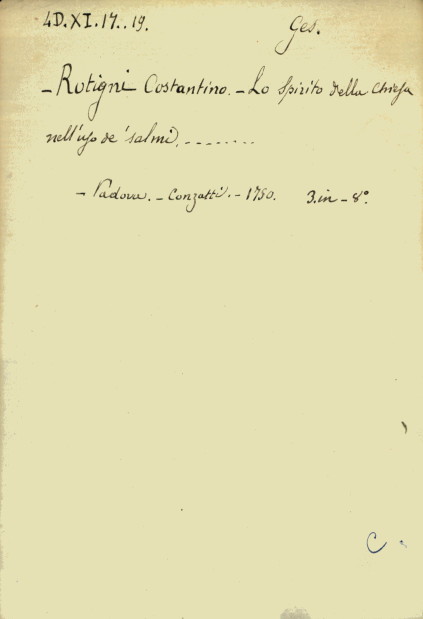 4D.XI.17..19. Ges.
- Rotigni Costantino. - Lo Spirito della Chiesa
nell'uso de' salmi. . . . . . . . .
- Padova. - Conzatti. - 1750. 3.in - 8º.
C